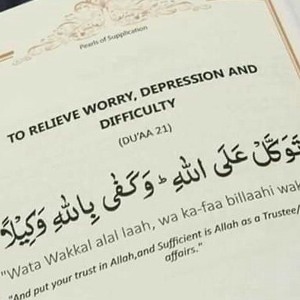 Pearls of Supplication
TO RELIEVE WORRY, DEPRESSION AND
DIFFICULTY
(DU'AA 21)
تَوَكَّلْ عَلَى اللّٰهِ ؕ وَكَفٰى بِاللّٰهِ وَكِيْلًا
"Wata Wakkal alal laah, wa ka-faa billaahi wak
"And put your trust in Allah,and Sufficient is Allah as a Trustee/
affairs."